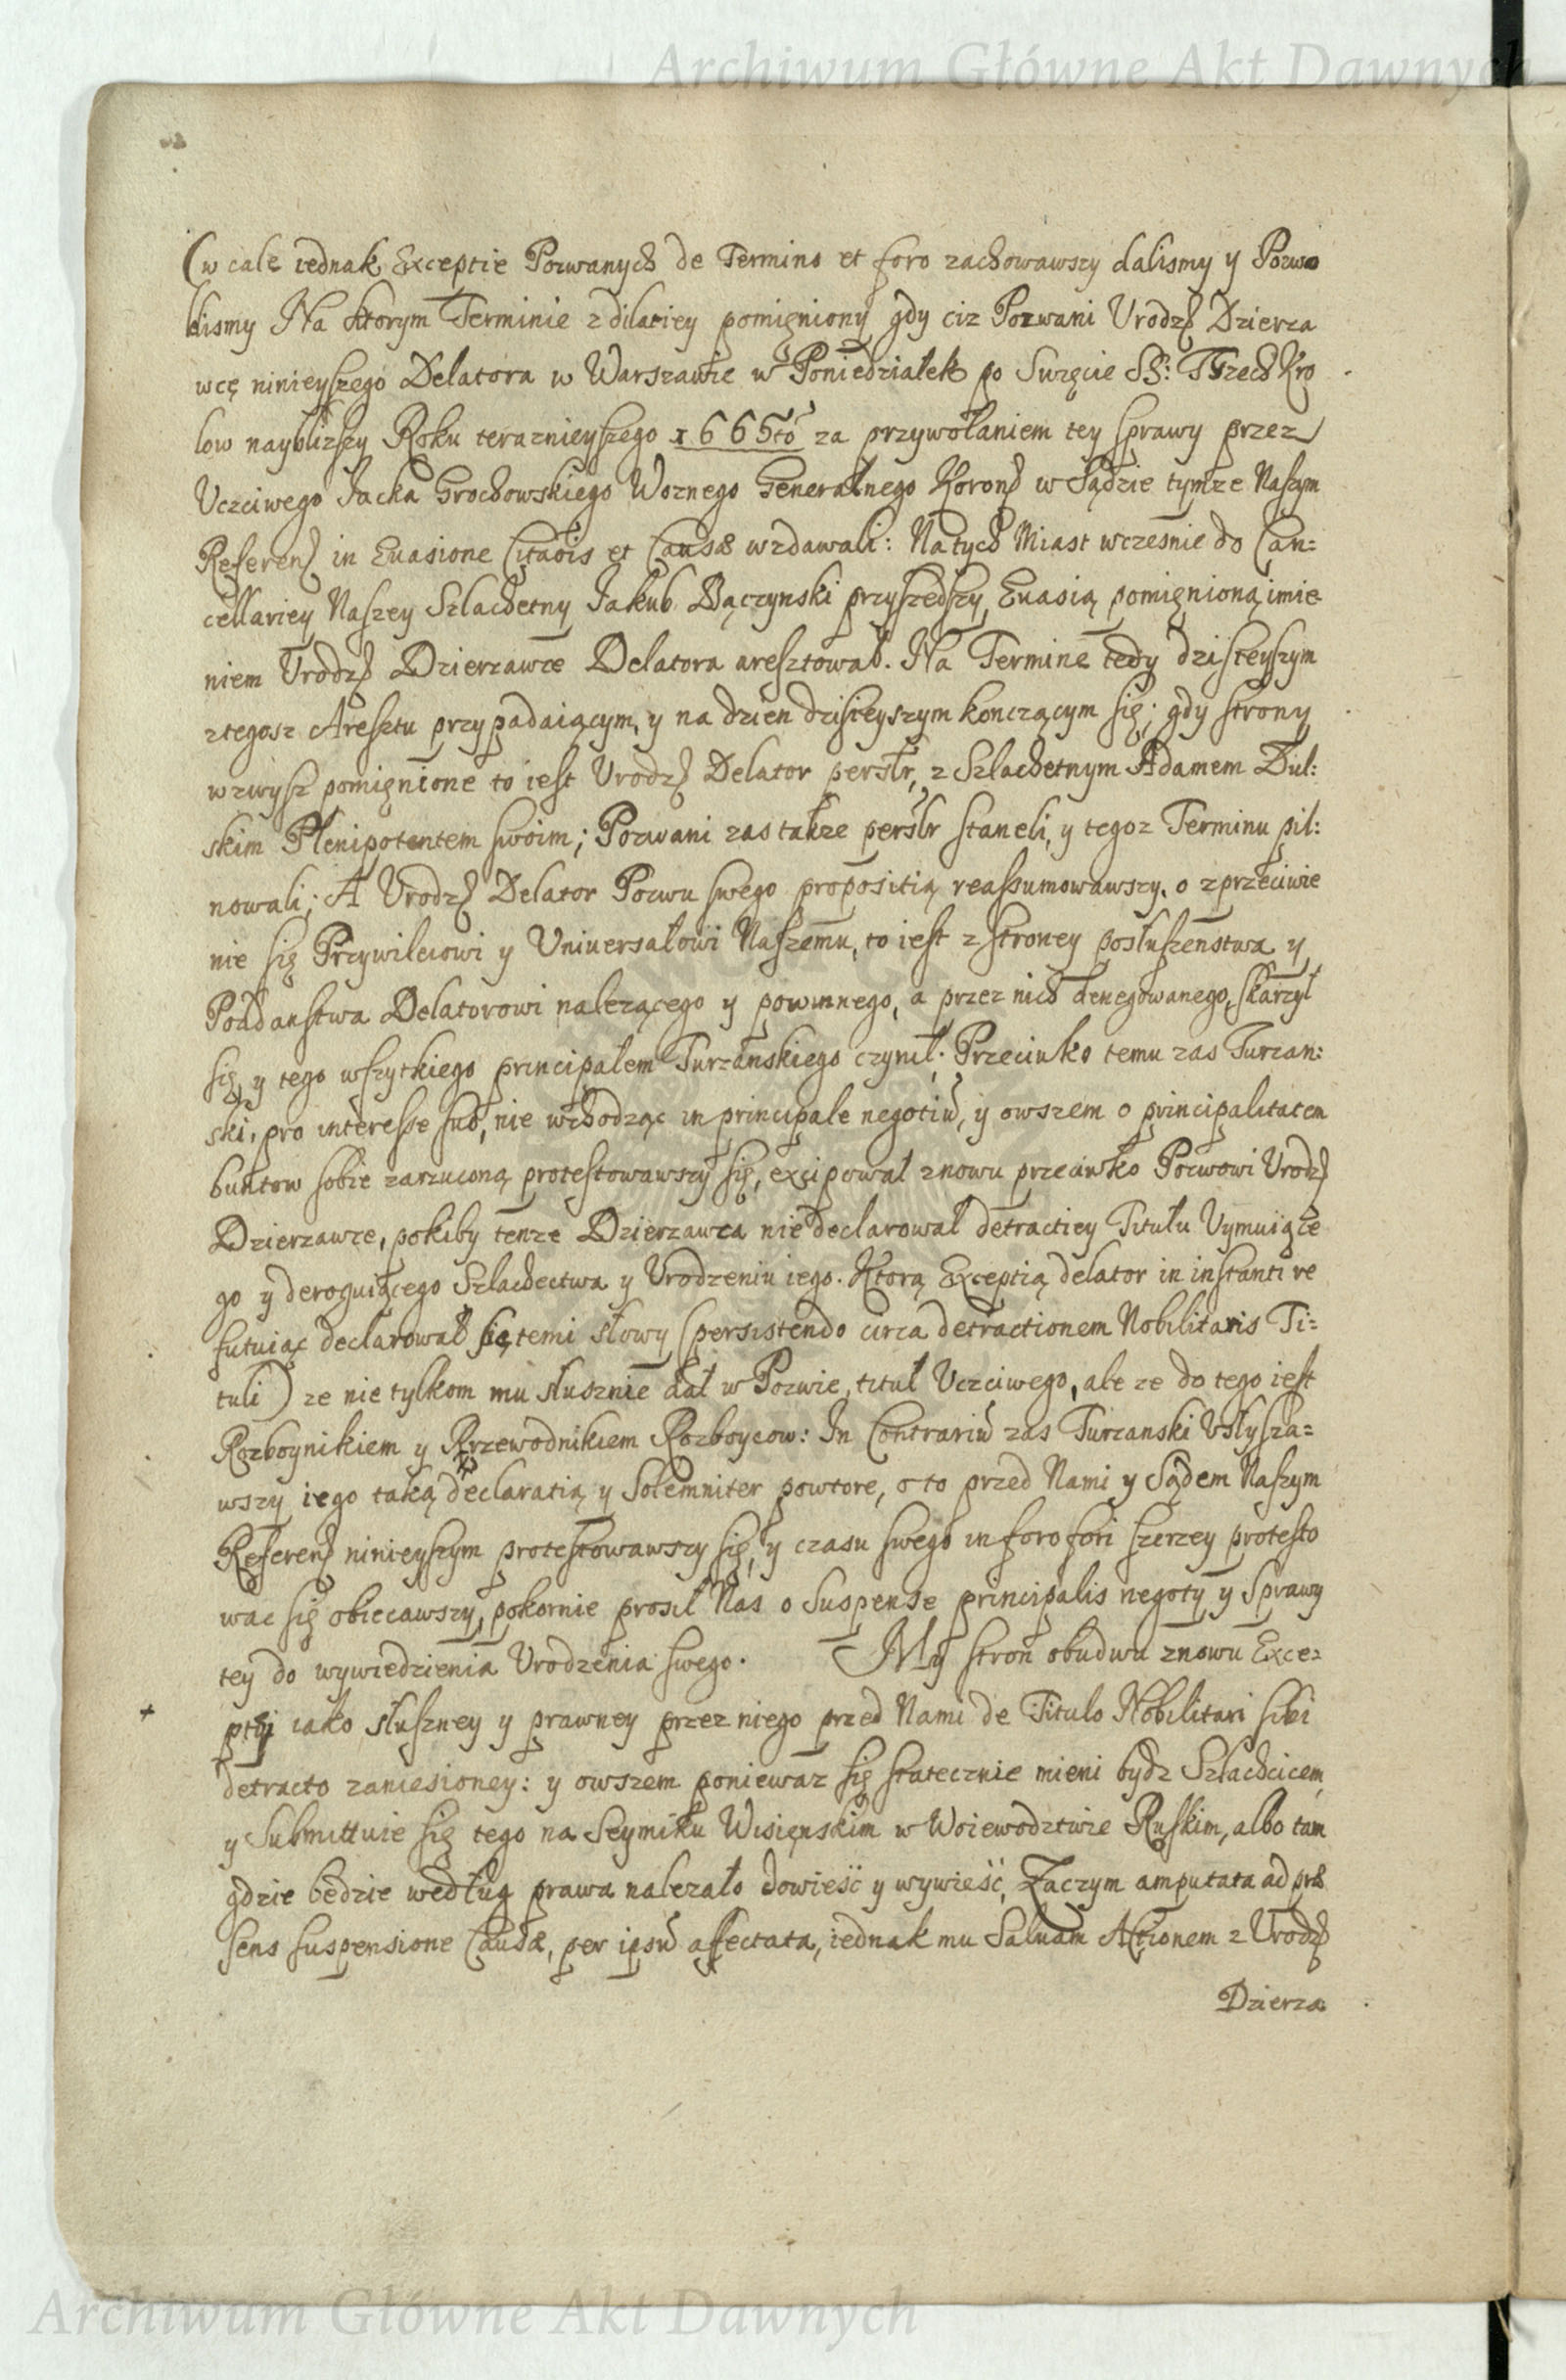 Archiwum Główne Akt Dawnych
(w cale iednak Exceptie Pozwanych de Termino et foro zachowawszy dalismy y Pozwo
lismy Na ktorym Terminie z dilatiey pomięniony gdy ciz Pozwani Urodz Dzierza
wcę ninieyszego Delatora w Warszawie w Poniedziałek po Swięcie SS: Trzech Kro
low naybliszy Roku teraznieyszego 1665to za przywołaniem tey sprawy przez
Uczciwego Jacka Grochowskiego Woznego Generalnego Koron w Sądzie tymze Naszym
Referen in Euasione Citaõis et Causæ wzdawali: Natych Miast wczesnie do Can=
cellariey Naszey Szlachetny Jakub Bączynski przyszedszy Euasią pomięnioną imie
niem Urodz Dzierzawce Delatora aresztował. Na Termine tedy dzisieyszym
z tegosz Aresztu przypadaiącym, y na dzien dzisieyszym konczącym się; gdy strony
wzwysz pomięnione to iest Urodz Delator persłr, z Szlachetnym Adamem Dul:
skim Plenipotentem swoim; Pozwani zas także persłr staneli, y tegoz Terminu pil:
nowali; A Urodz Delator Pozwu swego propositią reassumowawszy, o zprzeciwie
nie się Przywileiowi y Uniuersałowi Naszemu, to iest z stroney posłuszenstwa y
Poddanstwa Delatorowi nalezącego y powinnego, a przez nich denegowanego, skarzył
się, y tego wszytkiego principałem Turzanskiego czynił. Przeciwko temu zas Turzan:
ski, pro interesse suo, nie wchodząc in principale negotiũ, y owszem o principalitatem
buntow sobie zarzuconą protestowawszy się, excipował znowu przeciwko Pozwowi Urodz
Dzierzawce, pokiby tenze Dzierzawca nie declarował detractiey Titułu Uymuiące
go y deroguiącego Szlachectwa y Urodzeniu iego. Ktorą Exceptią delator in instanti re
futuiąc declarował się temi słowy (persistendo circa detractionem Nobilitaris Ti=
tuli) ze nie tylkom mu slusznie dał w Pozwie, tituł Uczciwego, ale ze do tego iest
Rozboynikiem y Przewodnikiem Rozboycow: In Contrariũ zas Turzanski Usłysza=
wszy iego taką declaratią y Solemniter powtore, o to przed Nami y Sądem Naszym
Referen ninieyszym protestowawszy się, y czasu swego in foro fori szerzey protesto
wac się obiecawszy, pokornie prosił Nas o Suspense principalis negoty y Sprawy
tey do wywiedzienia Urodzenia swego. My stron obudwu znowu Exce=
ptij iako słuszney y prawney przez niego przed Nami de Titulo Nobilitari sibi
detracto zaniesioney: y owszem poniewaz się statecznie mieni bydz Szlachcicem
y Submittuie się tego na Seymiku Wisięnskim w Woiewodztwie Ruskim, albo tam
gdzie będzie według prawa nalezało dowieść y wywieść, Zaczym amputata ad præ
sens suspensione Causæ, per ipsũ affectata, iednak mu Saluam Actionem z Urodz
Dzierza
Archiwum Główne Akt Dawnych